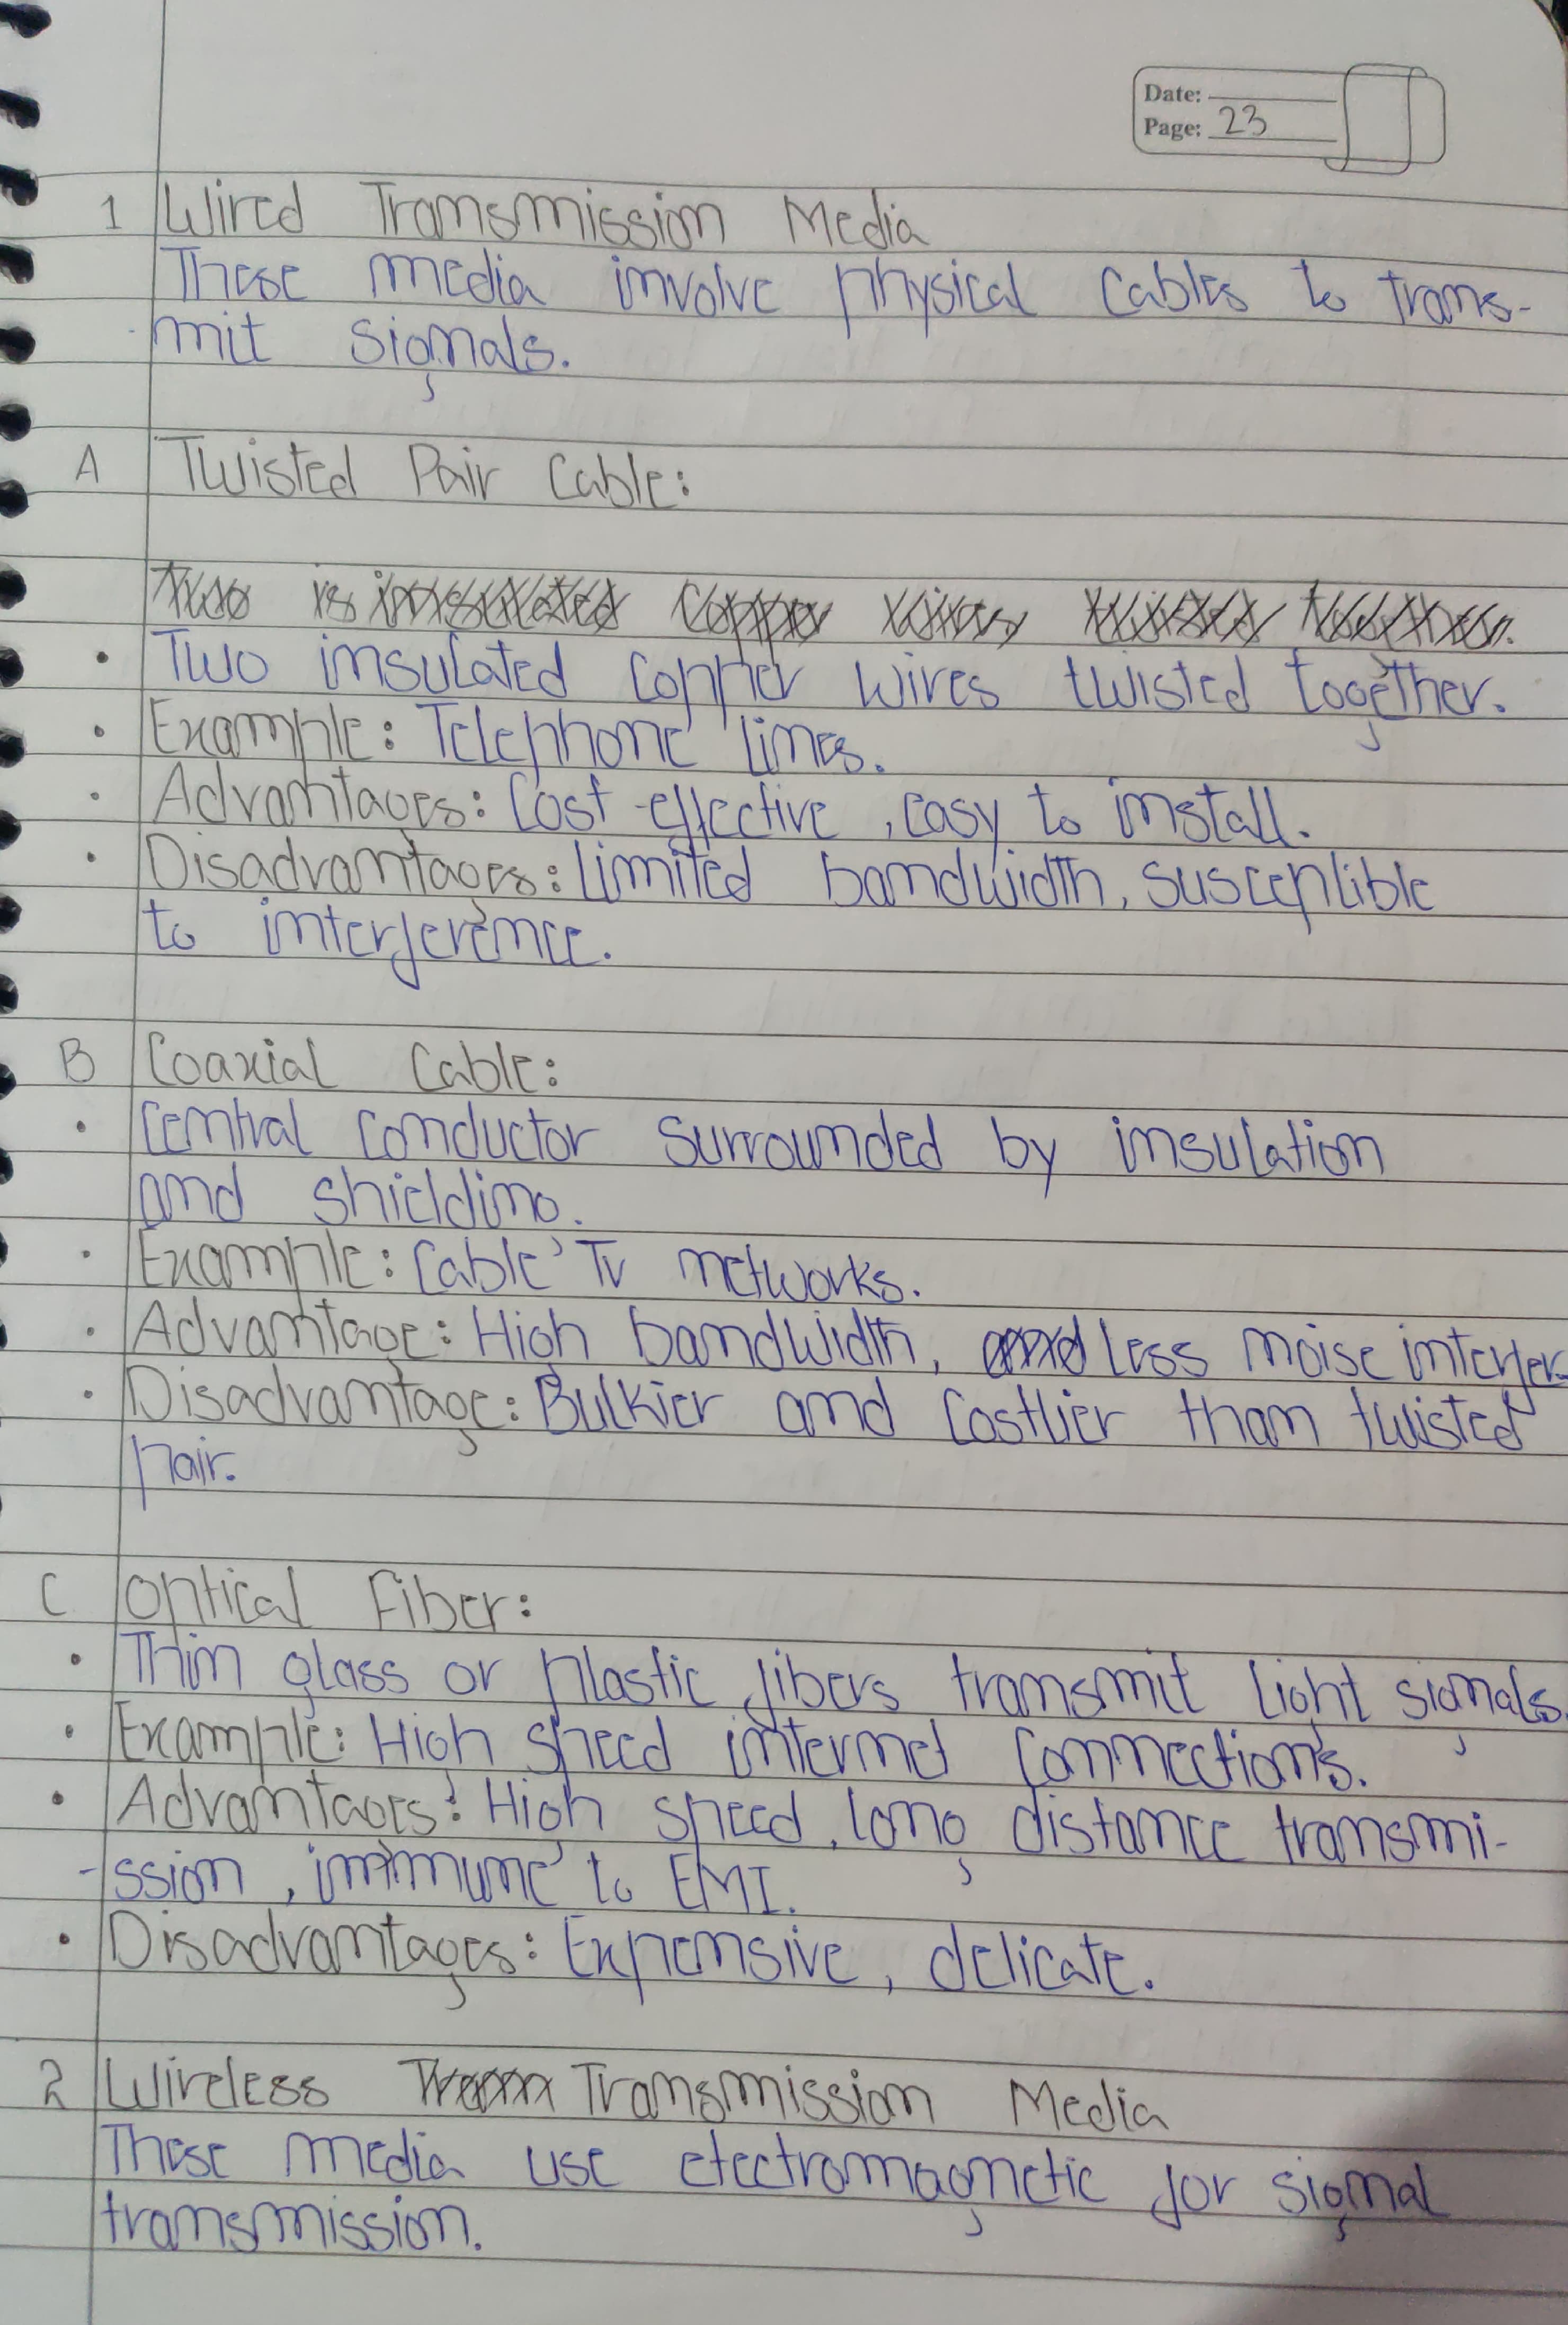 Date:
Page: 23
1 Wired Transmission Media
These media involve physical cables to trans-
mit signals.
A Twisted Pair Cable:
• Two insulated copper wires twisted together.
• Example: Telephone lines.
• Advantages: Cost-effective, easy to install.
• Disadvantages: Limited bandwidth, susceptible
to interference.
B Coaxial Cable:
• Central conductor surrounded by insulation
and shielding.
• Example: Cable TV networks.
• Advantage: High bandwidth, less noise interfer-
• Disadvantage: Bulkier and costlier than twisted
pair.
C Optical Fiber:
• Thin glass or plastic fibers transmit light signals.
• Example: High speed internet connections.
• Advantages: High speed, long distance transmi-
-ssion, immune to EMI.
• Disadvantages: Expensive, delicate.
2 Wireless Transmission Media
These media use electromagnetic for signal
transmission.